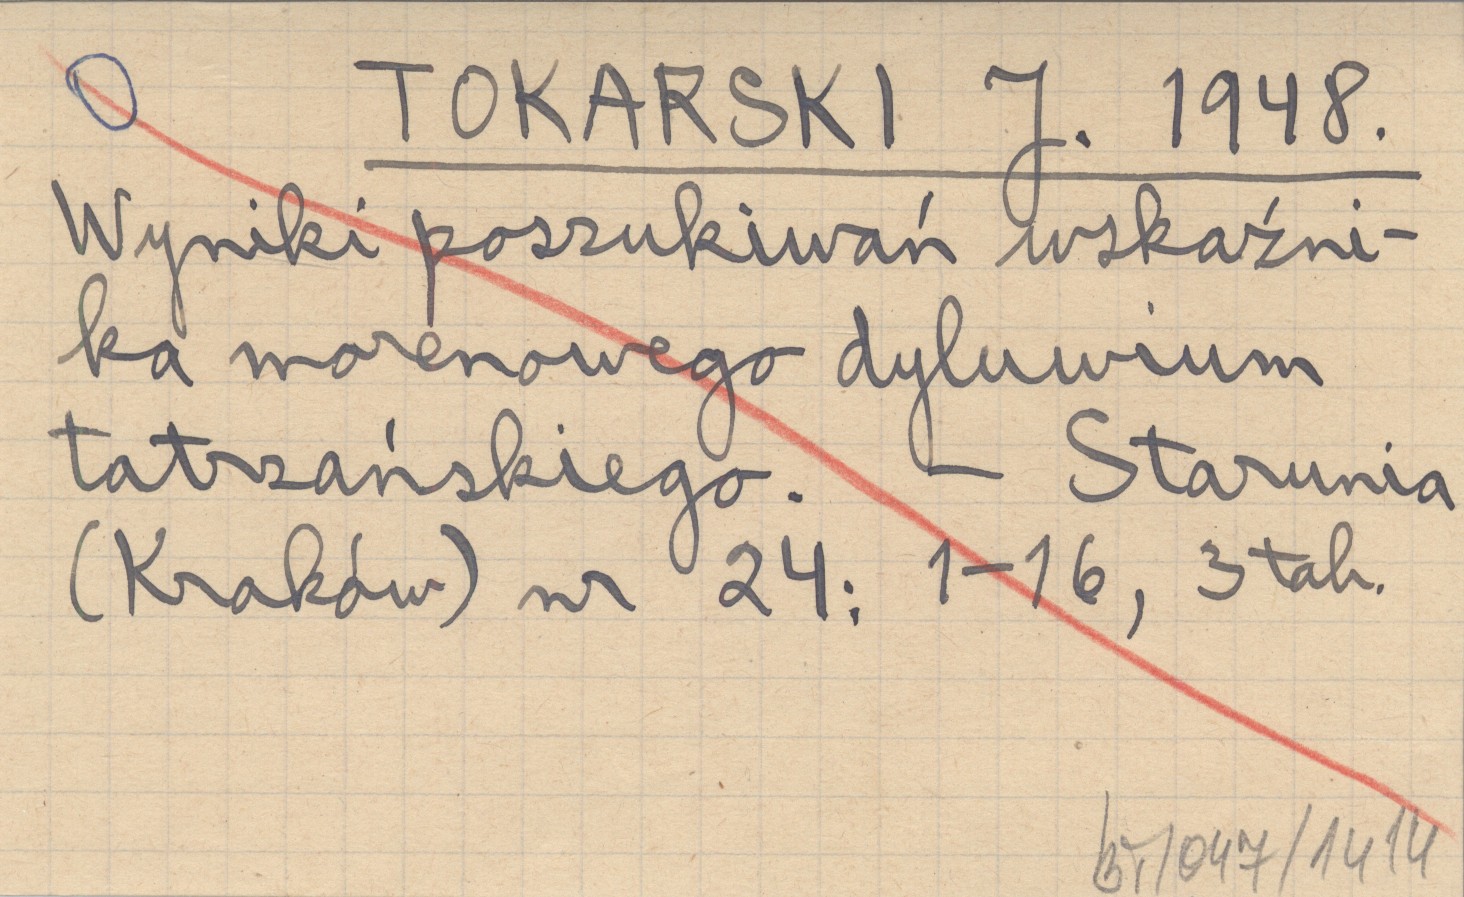 TOKARSKI J. 1948.
Wyniki poszukiwań wskaźni-
ka morenowego dyluwium
tatrzańskiego. — Starunia
(Kraków) nr 24: 1-16, 3 tab.
/047/1414